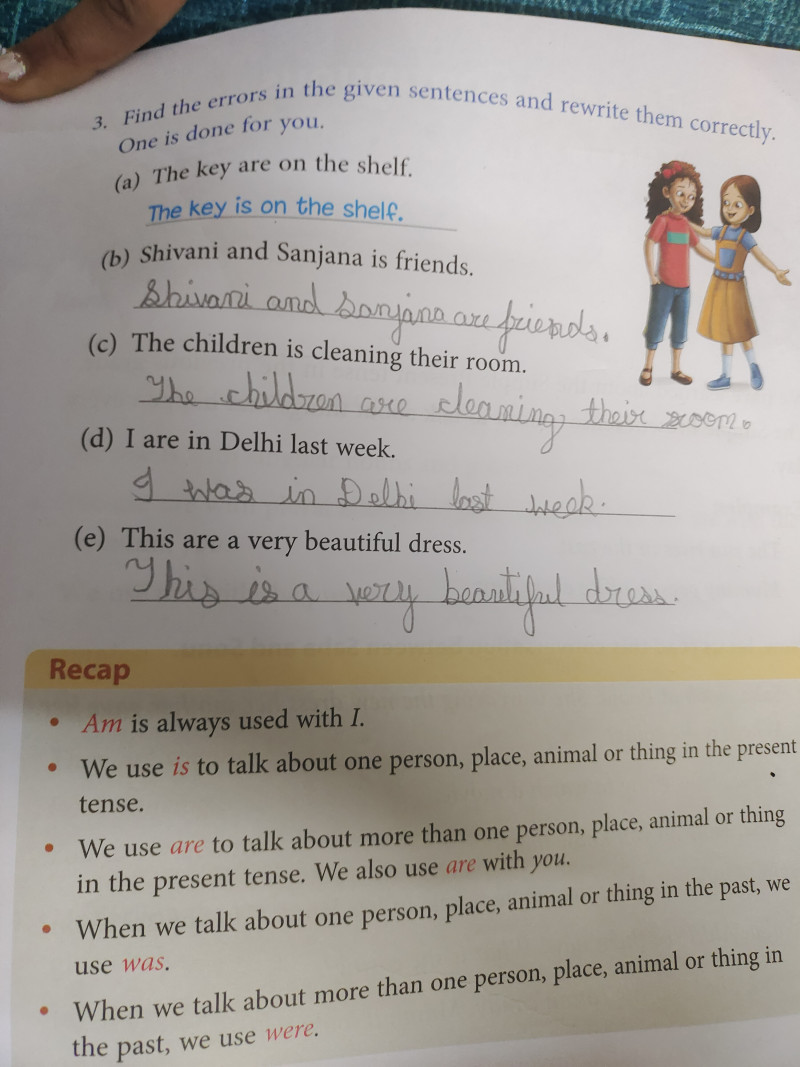 3. Find the errors in the given sentences and rewrite them correctly.
One is done for you.
(a) The key are on the shelf.
The key is on the shelf.
(b) Shivani and Sanjana is friends.
Shivani and Sanjana are friends.
(c) The children is cleaning their room.
The children are cleaning their room.
(d) I are in Delhi last week.
I was in Delhi last week.
(e) This are a very beautiful dress.
This is a very beautiful dress.
Recap
• Am is always used with I.
• We use is to talk about one person, place, animal or thing in the present
tense.
• We use are to talk about more than one person, place, animal or thing
in the present tense. We also use are with you.
• When we talk about one person, place, animal or thing in the past, we
use was.
• When we talk about more than one person, place, animal or thing in
the past, we use were.